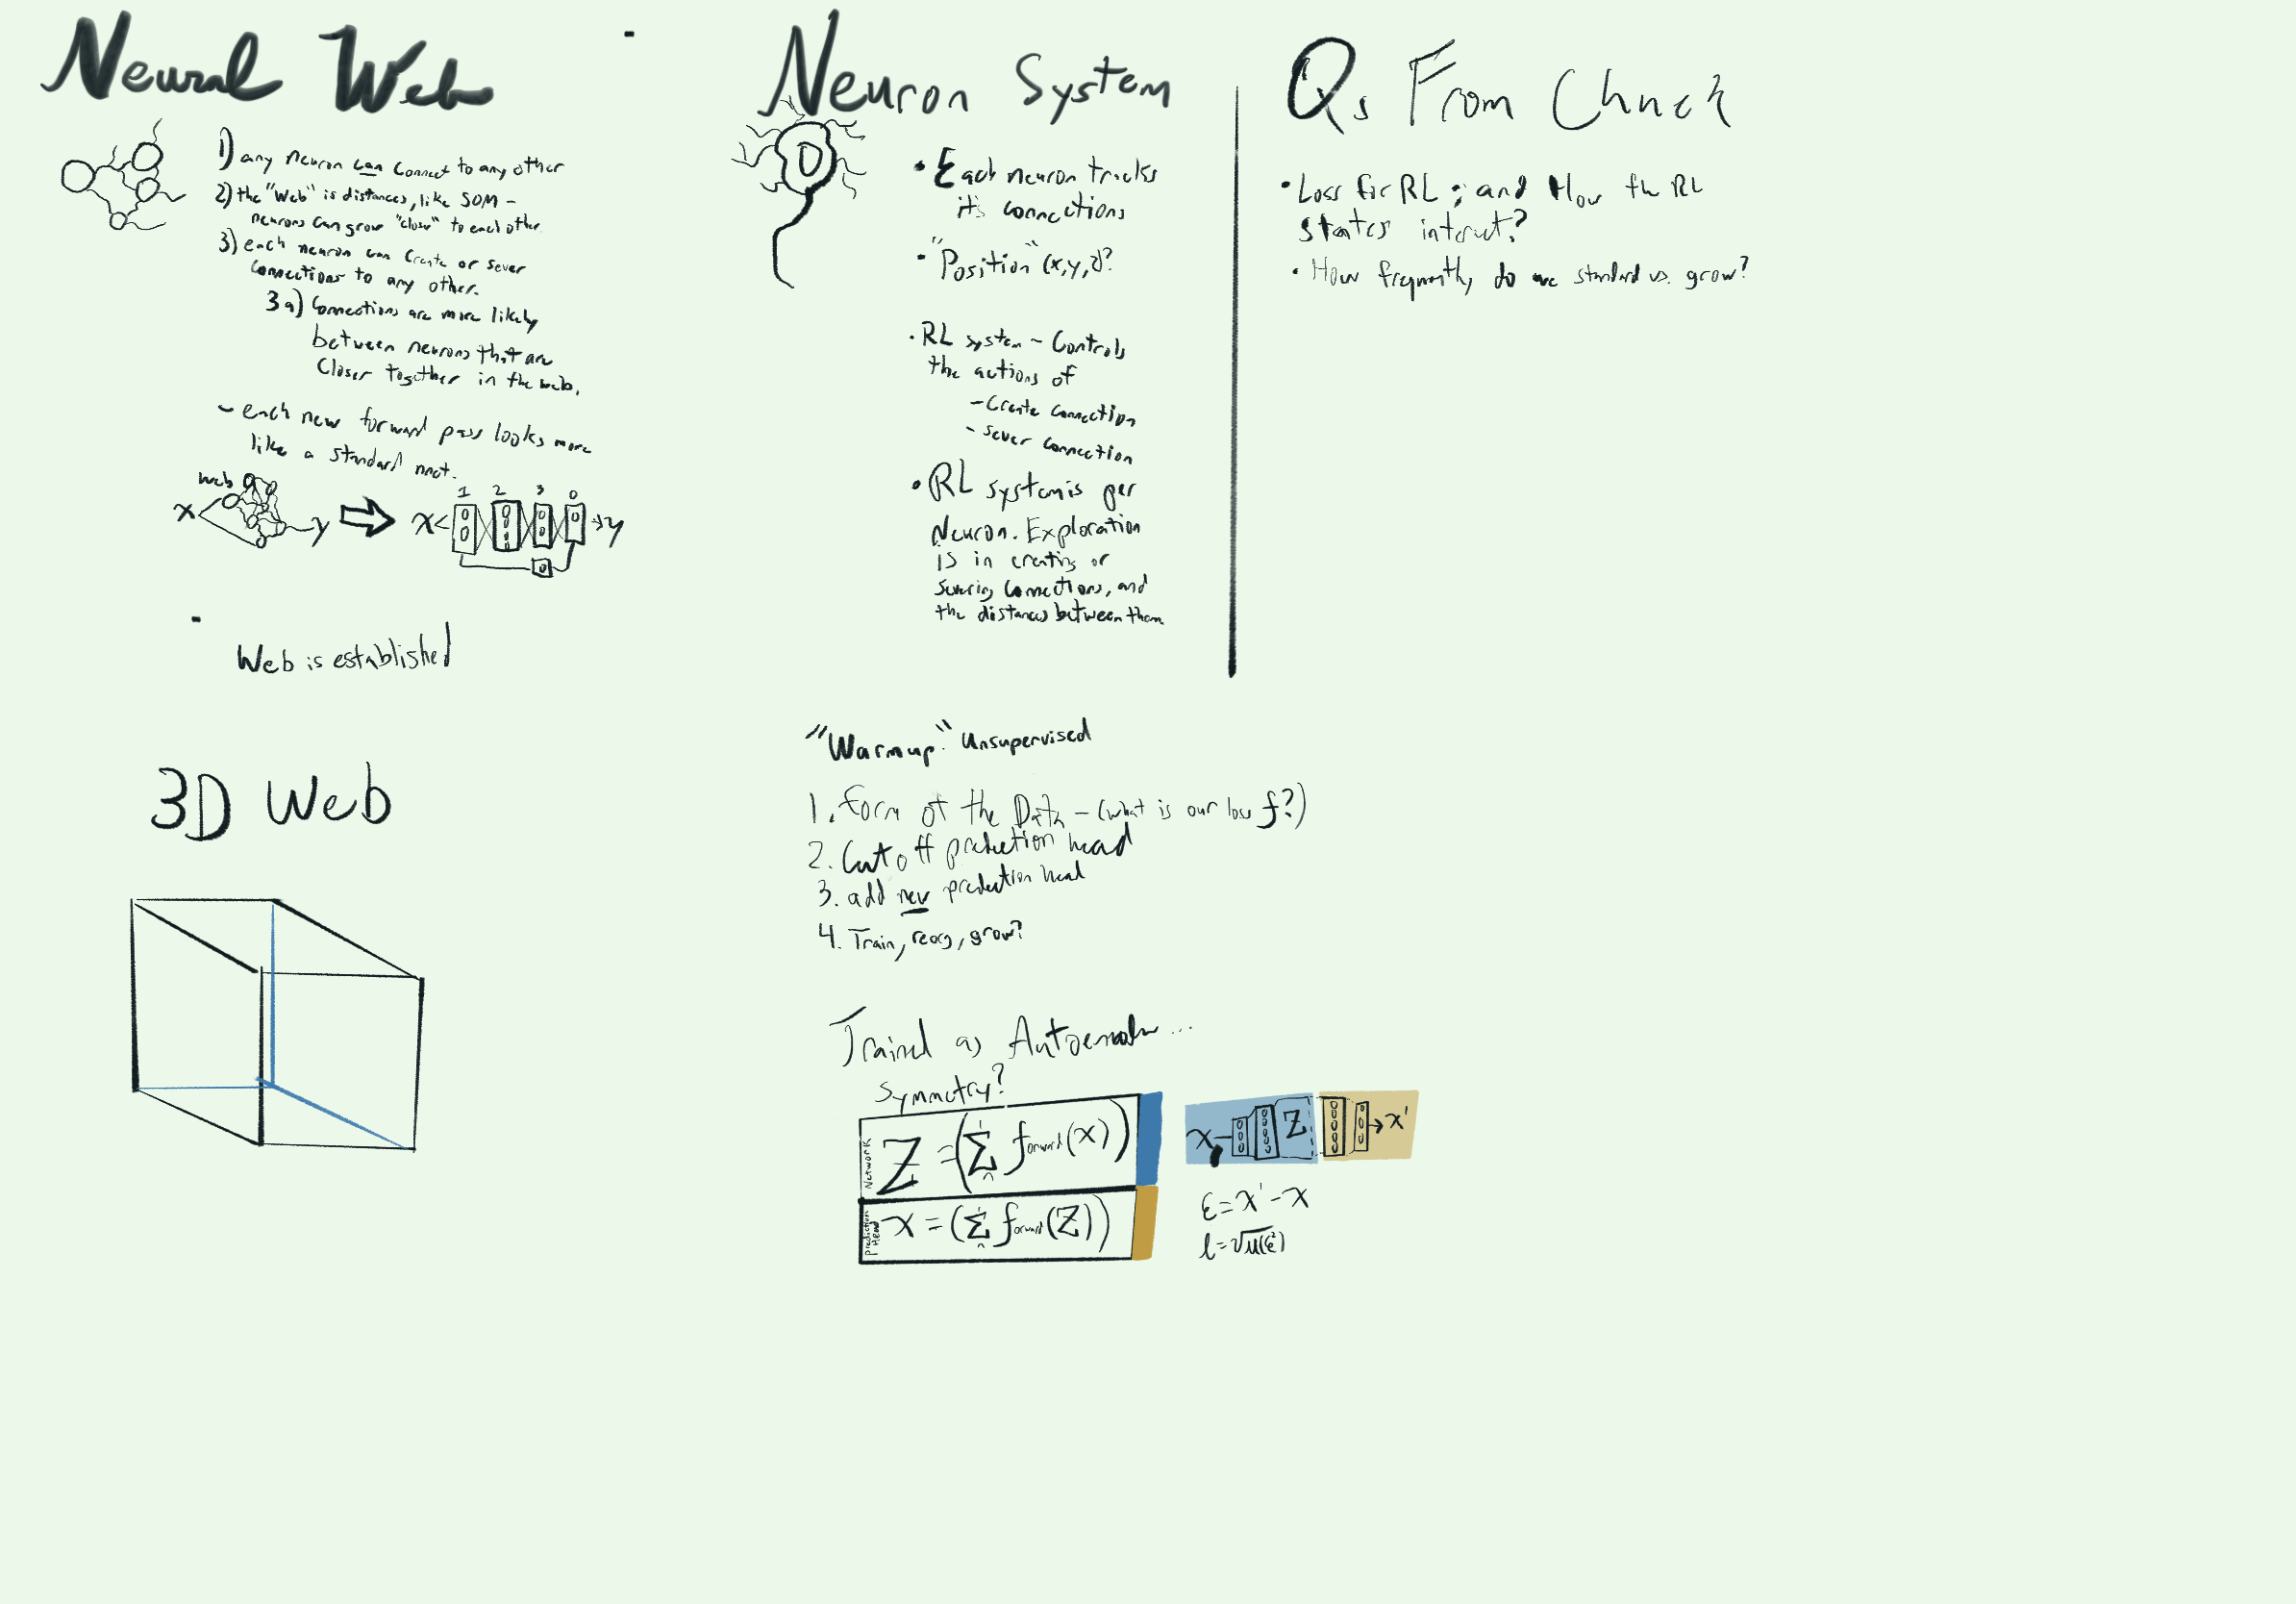 Neural Web
1) any neuron can connect to any other
2) the "Web" is distances, like SOM -
neurons can grow "close" to each other.
3) each neuron can create or sever
connections to any other.
3a) Connections are more likely
between neurons that are
closer together in the web.
- each new forward pass looks more
like a standard nnet.
web
x y
1 2 3 0
x y
Web is established
3D Web
Neuron System
• Each neuron tracks
it's connections
• "Position" (x,y,z)?
• RL system - Controls
the actions of
- Create connection
- sever connection
• RL system is per
Neuron. Exploration
is in creating or
severing connections, and
the distances between them.
Qs From Chuck
• Loss for RL; and How the RL
states interact?
• How frequently do we standard vs. grow?
"Warmup": Unsupervised
1. Form of the Data - (what is our loss f?)
2. Cut off prediction head
3. add new prediction head
4. Train, reorg, grow?
Trained as Autoencoder...
Symmetry?
Network
Z = (Σ forward(x))
Prediction Head
x = (Σ forward(Z))
x Z x'
ε = x' - x
l = √μ(ε²)